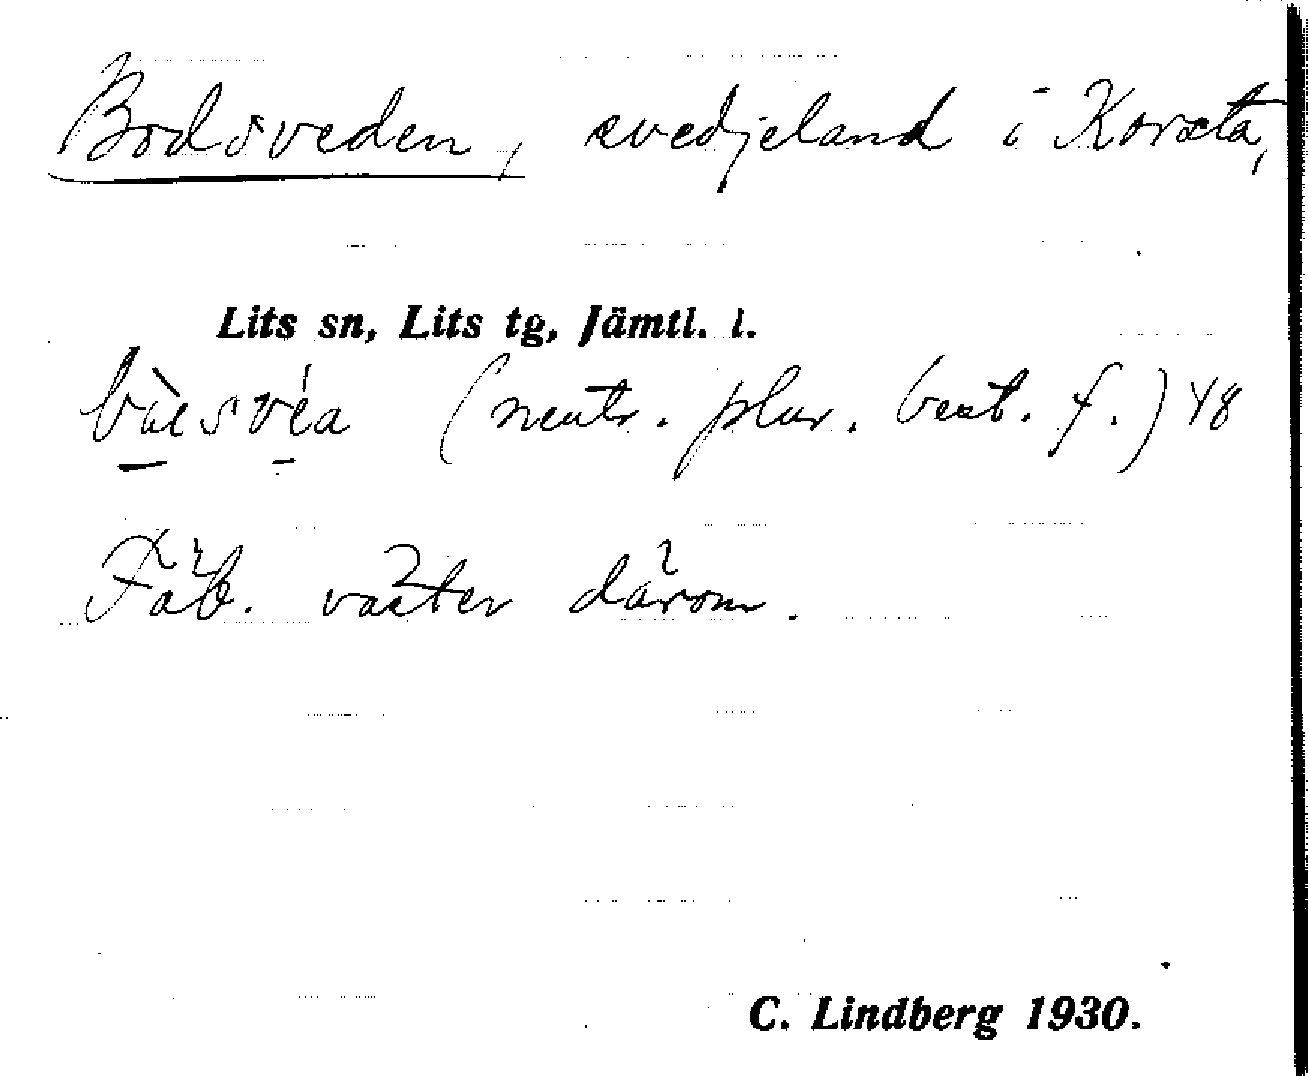 Bodsveden, svedjeland i Korsta,
Lits sn, Lits tg, Jämtl. l.
(neutr. plur. best. f.) 48
Fäb. väster därom.
C. Lindberg 1930.